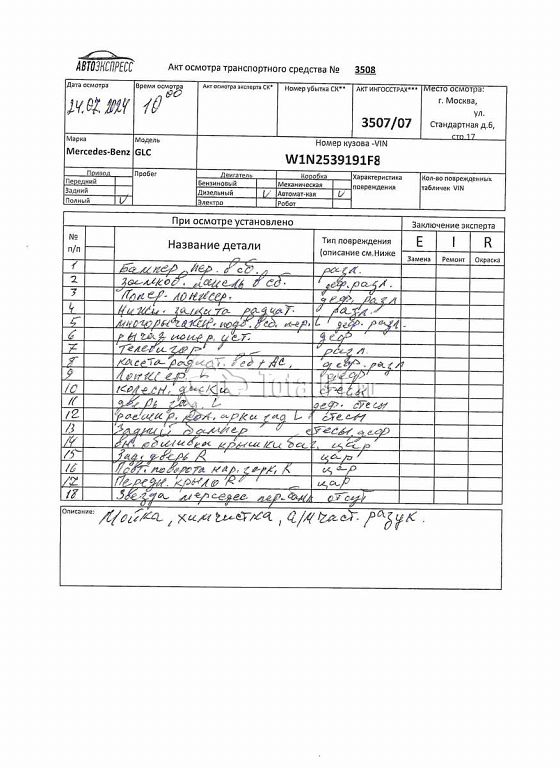 АВТОЭКСПРЕСС
Акт осмотра транспортного средства № 3508
Дата осмотра Время осмотра Акт осмотра эксперта СК* Номер убытка СК** АКТ ИНГОССТРАХ*** Место осмотра:
24.07.2024 10 00 3507/07 г. Москва,
ул.
Стандартная д.6,
стр.17
Марка Модель Номер кузова -VIN
Mercedes-Benz GLC W1N2539191F8
Привод Пробег Двигатель Коробка Характеристика повреждения Кол-во поврежденных табличек VIN
Передний Бензиновый Механическая
Задний Дизельный V Автомат-кая V
Полный V Электро Робот
При осмотре установлено Заключение эксперта
№ п/п Название детали Тип повреждения (описание см.Ниже E I R
Замена Ремонт Окраска
1 Бампер пер. в сб. разл.
2 замков. панель в сб. деф. разл.
3 Попер. лонжер. деф. разл
4 Нижн. защита радиат. разл.
5 многорычажн. подв. в сб. пер. L деф. разл.
6 рычаг попер. уст. деф
7 Телевизор разл.
8 касета радиат. в сб + АС, деф. разл
9 Лонжер L деф
10 колесн. диски стесы
11 дверь зад. L деф. стесы
12 расшир. кол. арки зад L стесы
13 Задний бампер стесы, деф
14 вн. обшивка крышки баг. цар
15 Зад. дверь R цар
16 Повт. поворота нар. зерк. R цар
17 Передн. крыло R цар
18 Звезда мерседес пер. бамп отсут
Описание: Мойка, химчистка, а/м част. разук.
Total